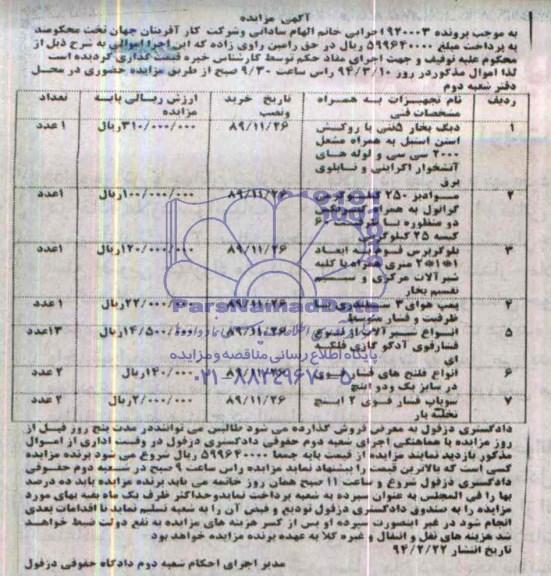 آگهی مزایده
به موجب پرونده ۹۲۰۰۰۳ اجرایی خانم الهام ساداتی وشرکت کار آفرینان جهان تخت محکومند
به پرداخت مبلغ ۵۹۹۶۴۰۰۰۰ ریال در حق رامین راوی زاده که این اجرا اموالی به شرح ذیل از
محکوم علیه توقیف و جهت اجرای مفاد حکم توسط کارشناس خبره قیمت گذاری گردیده است
لذا اموال مذکور در روز ۹۴/۳/۱۰ راس ساعت ۹/۳۰ صبح از طریق مزایده حضوری در محل
دفتر شعبه دوم
ردیف نام تجهیزات به همراه مشخصات فنی تاریخ خرید ونصب ارزش ریالی پایه مزایده تعداد
۱ دیگ بخار ۵تنی با روکش استن استیل به همراه مشعل ۲۰۰۰ سی سی و لوله های آتشخوار اکراینی و تابلوی برق ۸۹/۱۱/۲۶ ۳۱۰/۰۰۰/۰۰۰ریال ۱عدد
۲ ۲۵۰ گرانول به همراه دو منظوره با کیسه ۲۵ کیلوگرمی ۸۹/۱۱/۲۶ ۱۰۰/۰۰۰/۰۰۰ریال ۱عدد
۳ بلوگرپرس فوم به ابعاد ۱*۱*۲ متری همراه با کلیه شیرآلات مرکزی و سیستم تقسیم بخار ۸۹/۱۱/۲۶ ۱۲۰/۰۰۰/۰۰۰ریال ۱عدد
۴ پمپ هوای ۳ سیلندری با ظرفیت و فشار متوسط ۸۹/۱۱/۲۶ ۲۲/۰۰۰/۰۰۰ریال ۱عدد
۵ انواع شیرآلات از نوع فشارقوی آدکو گازی فلکه ای ۸۹/۱۱/۲۶ ۱۴/۵۰۰/۰۰۰ریال ۱۳عدد
۶ انواع فلنچ های فشار قوی در سایز یک ودو اینچ ۸۹/۱۱/۲۶ ۱۴۰/۰۰۰ریال ۲ عدد
۷ سوپاپ فشار قوی ۲ اینچ تخلیه بار ۸۹/۱۱/۲۶ ۲/۰۰۰/۰۰۰ریال ۲ عدد
ParsNamadData
پایگاه اطلاع رسانی مناقصه و مزایده
۰۲۱-۸۸۳۴۹۶۷۰-۵
دادگستری دزفول به معرض فروش گذارده می شود طالبین می توانند در مدت پنج روز قبل از
روز مزایده با هماهنگی اجرای شعبه دوم حقوقی دادگستری دزفول در وقت اداری از اموال
مذکور بازدید نمایند مزایده از قیمت پایه جمعا ۵۹۹۶۴۰۰۰۰ ریال شروع می شود برنده مزایده
کسی است که بالاترین قیمت را پیشنهاد نماید مزایده راس ساعت ۹ صبح در شعبه دوم حقوقی
دادگستری دزفول شروع و ساعت ۱۱ صبح همان روز خاتمه می یابد برنده مزایده باید ده درصد
بها را فی المجلس به عنوان سپرده به شعبه پرداخت نماید وحداکثر ظرف یک ماه بقیه بهای مورد
مزایده را به صندوق دادگستری دزفول تودیع و قبض آن را به شعبه تسلیم نماید تا اقدامات بعدی
انجام شود در غیر اینصورت سپرده او پس از کسر هزینه های مزایده به نفع دولت ضبط خواهد
شد هزینه های نقل و انتقال و غیره کلا به عهده برنده مزایده خواهد بود
تاریخ انتشار ۹۴/۲/۲۲
مدیر اجرای احکام شعبه دوم دادگاه حقوقی دزفول